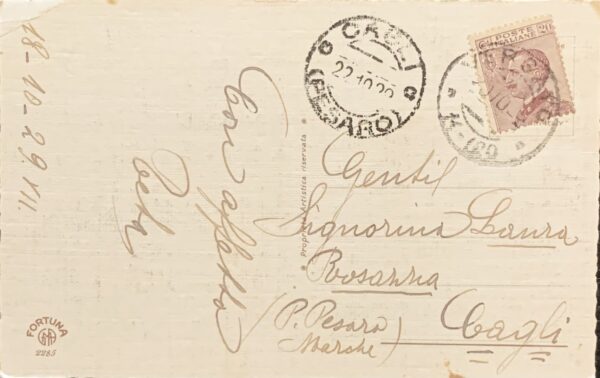 18-10-29. VII.
Con affetto
CAGLI
22.10.29
(PESARO)
POSTE ITALIANE
Proprietà Artistica riservata
Gentil
Signorina Laura
Rosanna
(P. Pesaro
Marche)
Cagli
FORTUNA
2285